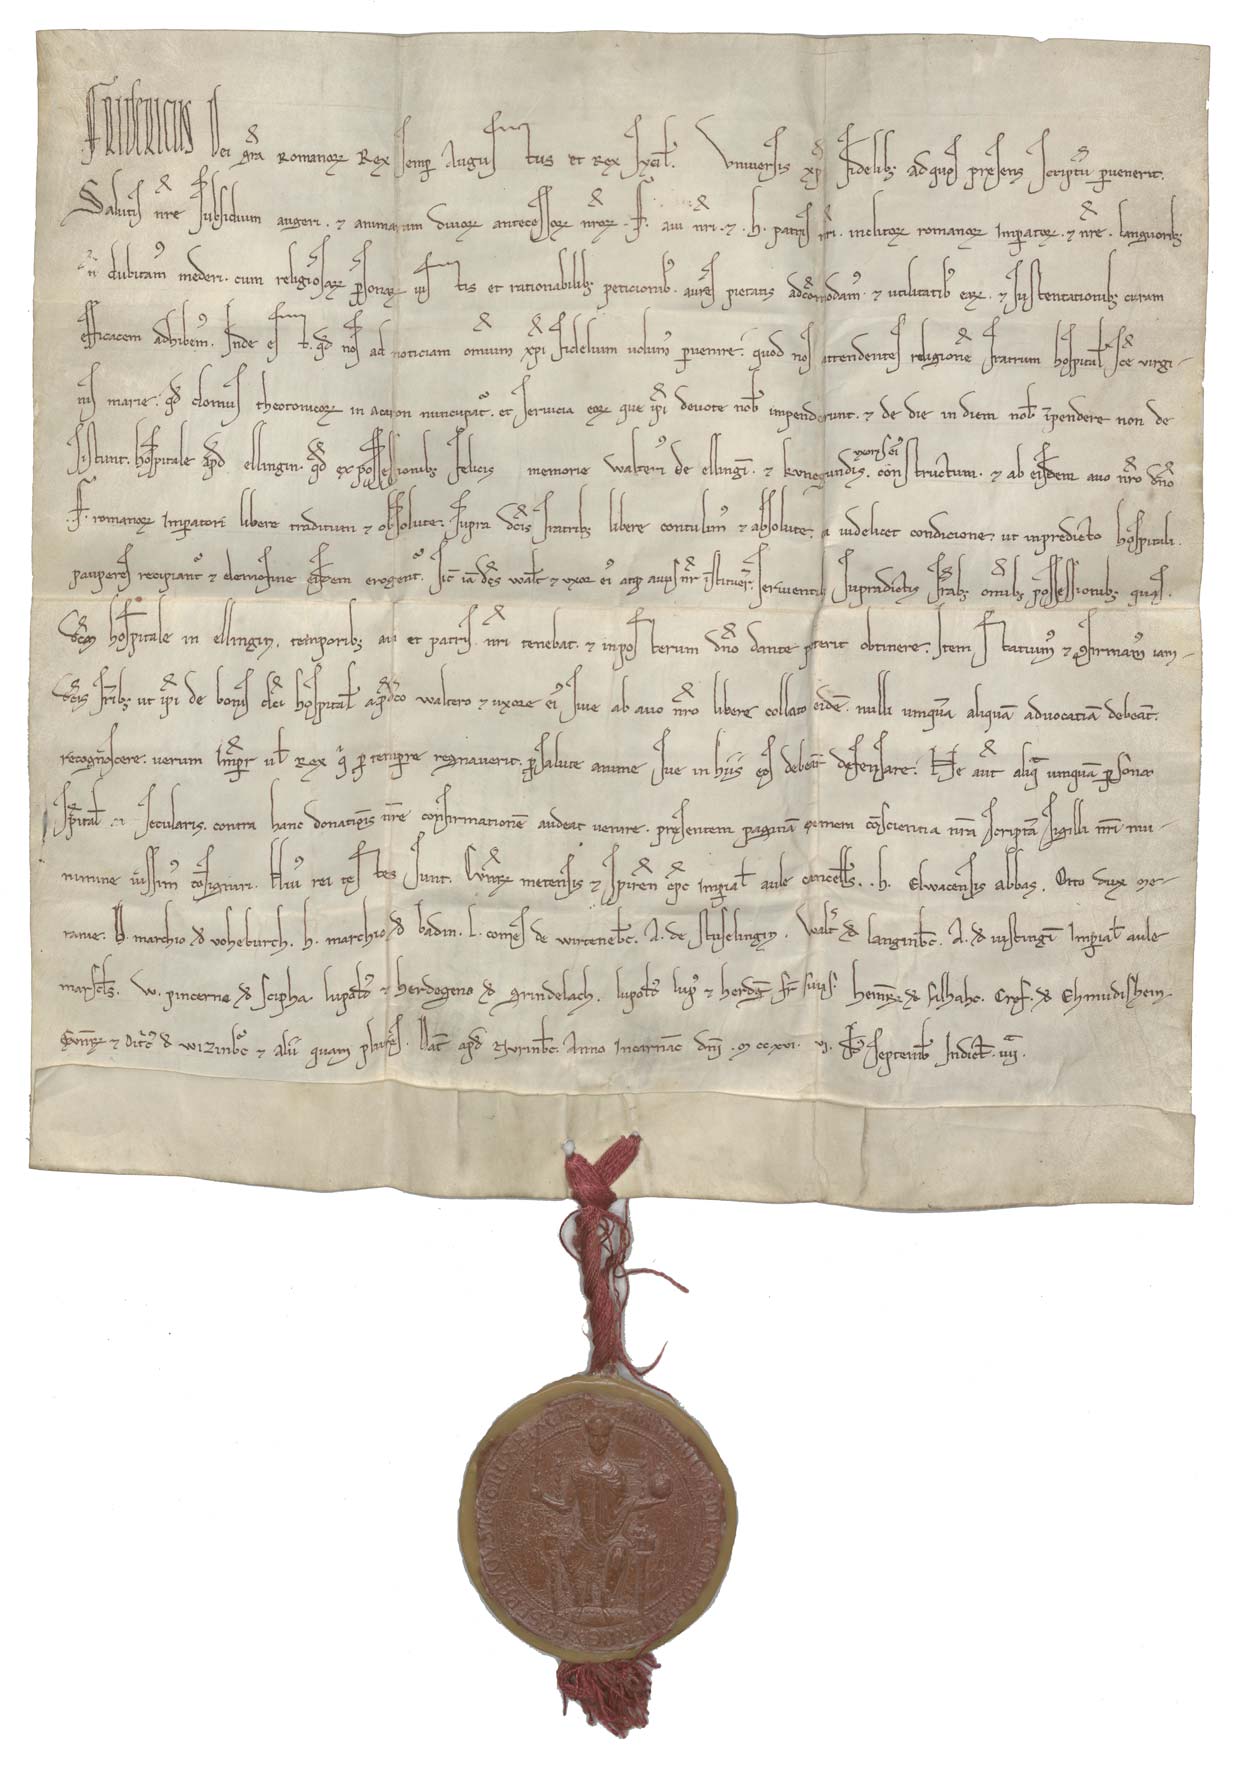 FRIDERICUS Dei gr̃a Romanoꝝ Rex semp̱ Augustus et Rex sycil̃. Vniuersis xp̃i fidelib; ad quos presens scriptũ p̱uenerit.
Salutis nr̃e subsidium augeri. ⁊ animarum diuoꝝ antecessoꝝ nr̃oꝝ. F. aui nr̃i. ⁊. h. patris nr̃i. inclitoꝝ romanoꝝ Imp̱atoꝝ. ⁊ nr̃e. languorib;
ñ dubitam᷒ mederi. cum religiosaꝝ p̱sonaꝝ iustis et rationabilib; peticionib᷒. aures pietatis adcõmodam᷒. ⁊ utilitatib᷒ eaꝝ. ⁊ sustentationib; curam
efficacem adhibem᷒. Inde est. qd̃ nos ad noticiam omnium xp̃i fidelium uolum᷒ p̱uenire. quod nos attendentes religionẽ fratrum hospital̃ sc̃e virgi-
nis marie. qd̃ domus theotonicoꝝ in accon nuncupat᷒. et seruicia eoꝝ que ip̃i deuote nob̃ impenderunt. ⁊ de die in diem nob̃ ĩpendere non de
sistunt. hospitale ap̃d ellingin. qd̃ ex possessionib; felicis memorie walteri de ellingĩ. ⁊ kvnegundis. uxoris ei᷒ constructum. ⁊ ab eisdem auo nr̃o dñо
.F. romanoꝝ Imp̱atori libere traditum ⁊ absolute. supra dc̃is fratrib; libere contulim᷒ ⁊ absolute. ea uidelicet condicione. ut in predicto hospitali.
pauperes recipiant᷒ ⁊ elemosine eisdem erogent᷒. sic̃ iã dc̃s walt̃ ⁊ uxor ei᷒ atq; auus nr̃ ĩstituer̃. seruientib; supradictis fr̃ab; omĩb; possessionib; quas.
dc̃m hospitale in ellingin. temporib; aui et patris nr̃i tenebat. ⁊ in posterum dño dante poterit obtinere. Item statuim᷒ ⁊ ꝯfirmam᷒ iam-
dc̃is fr̃ib; ut ip̃i de bonis dc̃i hospital̃ a p̃dc̃o waltero ⁊ uxore ei᷒ siue ab auo nr̃o libere collato eidẽ. nulli umquã aliquã aduocatiã debeãt.
recognoscere. uerum Imp̱r ul̃ Rex q̃ p̱ tempore regnauerit. p̱ salute anime sue in hiis eos debeãt defensare. Ne aut̃ aliq̃ umquam p̱sona
sp̃ital̃ secularis. contra hanc donationis nr̃e confirmationẽ audeat uenire. presentem paginã conscientia nr̃a scriptã sigilli nr̃i mu-
nimine iussim᷒ cõsigniri. Hui᷒ rei testes sunt. Cvnr̃ metensis ⁊ spiren̄ ep̃c Imp̱ial̃ aule cancell̃s. .h. Elwacensis abbas. Otto dux me-
ranie. D. marchio đ voheburch. h. marchio đ badin. l. comes de wirtenebc̃. A. de stuselingin. Walt̃ đ langinbc̃. A. đ iustingĩ Imp̱ial̃ aule
marscl̃s. W. pincerna đ scipha. lupold᷒ ⁊ herdegeno đ grindelach. lupold᷒ lup᷒ ⁊ herdeg̃ fr̃ suus. heinr̃ đ silhahc.
Cvnr̃ đ wizinbc̃ ⁊ alii quam plures. Dat̃ ap̃d Nurinbc̃. Anno Incarnac̃ dñi. m cc xvi. vi. kl̃ septemb̃ Indict̃. iiij.